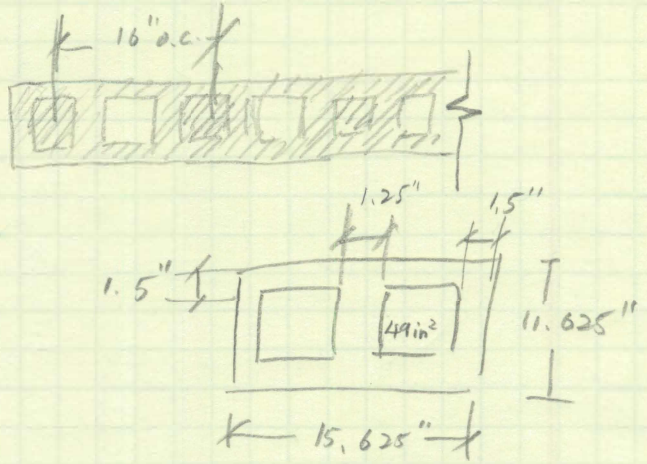 16" o.c.
1.25"
1.5"
1.5"
49in²
11.625"
15.625"